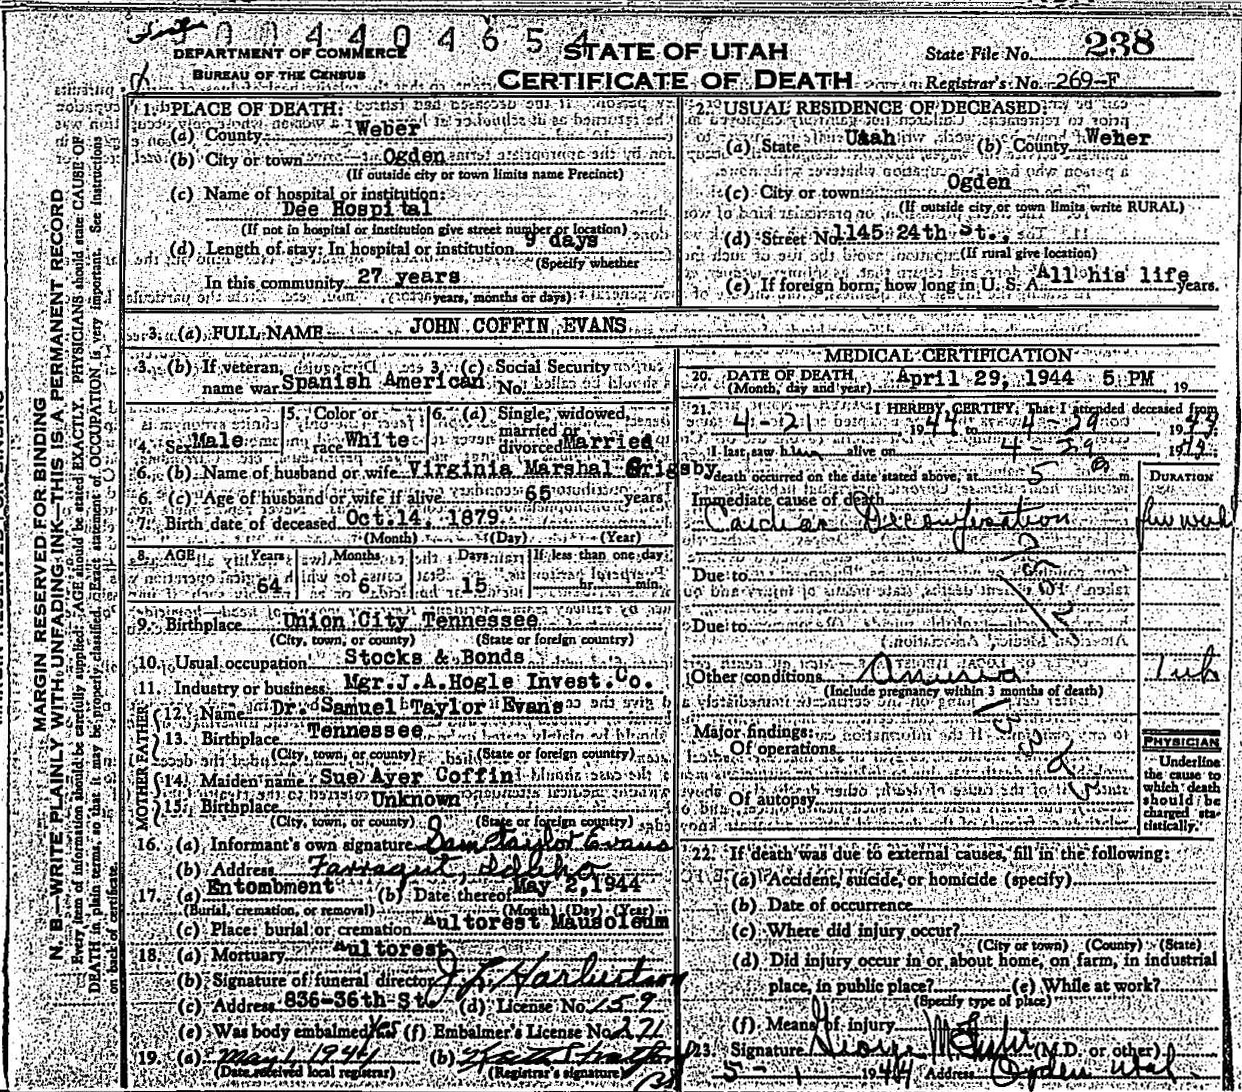 004404654
DEPARTMENT OF COMMERCE
BUREAU OF THE CENSUS
STATE OF UTAH
CERTIFICATE OF DEATH
State File No. 238
Registrar's No. 269-F
MARGIN RESERVED FOR BINDING
N. B.—WRITE PLAINLY WITH UNFADING INK—THIS IS A PERMANENT RECORD
Every item of information should be carefully supplied. AGE should be stated EXACTLY. PHYSICIANS should state CAUSE OF
DEATH in plain terms, so that it may be properly classified. Exact statement of OCCUPATION is very important. See instructions
on back of certificate.
1. PLACE OF DEATH:
(a) County Weber
(b) City or town Ogden
(If outside city or town limits name Precinct)
(c) Name of hospital or institution:
Dee Hospital
(If not in hospital or institution give street number or location)
(d) Length of stay: In hospital or institution 9 days
(Specify whether
In this community 27 years
years, months or days)
2. USUAL RESIDENCE OF DECEASED:
(a) State Utah (b) County Weher
(c) City or town Ogden
(If outside city or town limits write RURAL)
(d) Street No. 1145 24th St.,
(If rural give location)
(e) If foreign born, how long in U. S. A. All his life years.
3. (a) FULL NAME JOHN COFFIN EVANS
3. (b) If veteran, 3. (c) Social Security
name war Spanish American No.
4. Sex Male 5. Color or race White 6. (a) Single, widowed, married or divorced Married
6. (b) Name of husband or wife Virginia Marshal Grigsby
6. (c) Age of husband or wife if alive 65 years
7. Birth date of deceased Oct. 14, 1879
(Month) (Day) (Year)
8. AGE Years Months Days If less than one day
64 6 15 hr. min.
9. Birthplace Union City Tennessee
(City, town, or county) (State or foreign country)
10. Usual occupation Stocks & Bonds
11. Industry or business Mgr. J.A. Hogle Invest. Co.
FATHER
12. Name Dr. Samuel Taylor Evans
13. Birthplace Tennessee
(City, town, or county) (State or foreign country)
MOTHER
14. Maiden name Sue Ayer Coffin
15. Birthplace Unknown
(City, town, or county) (State or foreign country)
16. (a) Informant's own signature Sam Taylor Evans
(b) Address Farragut, Idaho
17. (a) Entombment (b) Date thereof May 2, 1944
(Burial, cremation, or removal) (Month) (Day) (Year)
(c) Place: burial or cremation Aultorest Mausoleum
18. (a) Mortuary Aultorest
(b) Signature of funeral director
(c) Address 836-36th St. (d) License No. 159
(e) Was body embalmed Yes (f) Embalmer's License No. 271
19. (a) May 1, 1944 (b)
(Date received local registrar) (Registrar's signature)
MEDICAL CERTIFICATION
20. DATE OF DEATH
(Month, day and year) April 29, 1944 5 PM 19
21. I HEREBY CERTIFY, That I attended deceased from
4-21 1944 to 4-29 1944
I last saw him alive on 4-29 1944
death occurred on the date stated above, at 5 m. DURATION
Immediate cause of death
Cardiac Decompensation few weeks
Due to
Due to
Other conditions Anuria 1 wk
(Include pregnancy within 3 months of death)
Major findings:
Of operations
Of autopsy
PHYSICIAN
Underline
the cause to
which death
should be
charged sta-
tistically.
22. If death was due to external causes, fill in the following:
(a) Accident, suicide, or homicide (specify)
(b) Date of occurrence
(c) Where did injury occur?
(City or town) (County) (State)
(d) Did injury occur in or about home, on farm, in industrial
place, in public place? (e) While at work?
(Specify type of place)
(f) Means of injury
23. Signature George (M.D. or other)
5-1 1944 Address Ogden Utah